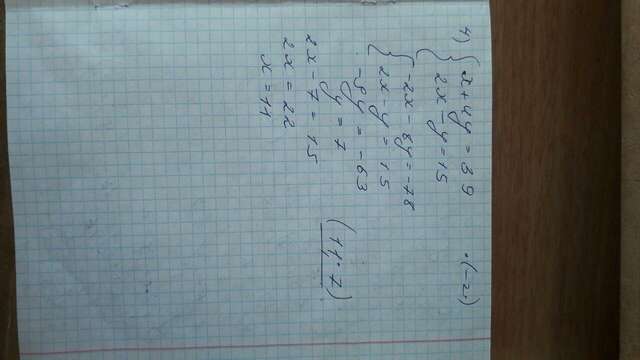 4) { x + 4y = 39 ·(-2)
{ 2x - y = 15
{ -2x - 8y = -78
{ 2x - y = 15
-9y = -63
y = 7
2x - 7 = 15
2x = 22
x = 11
(11; 7)